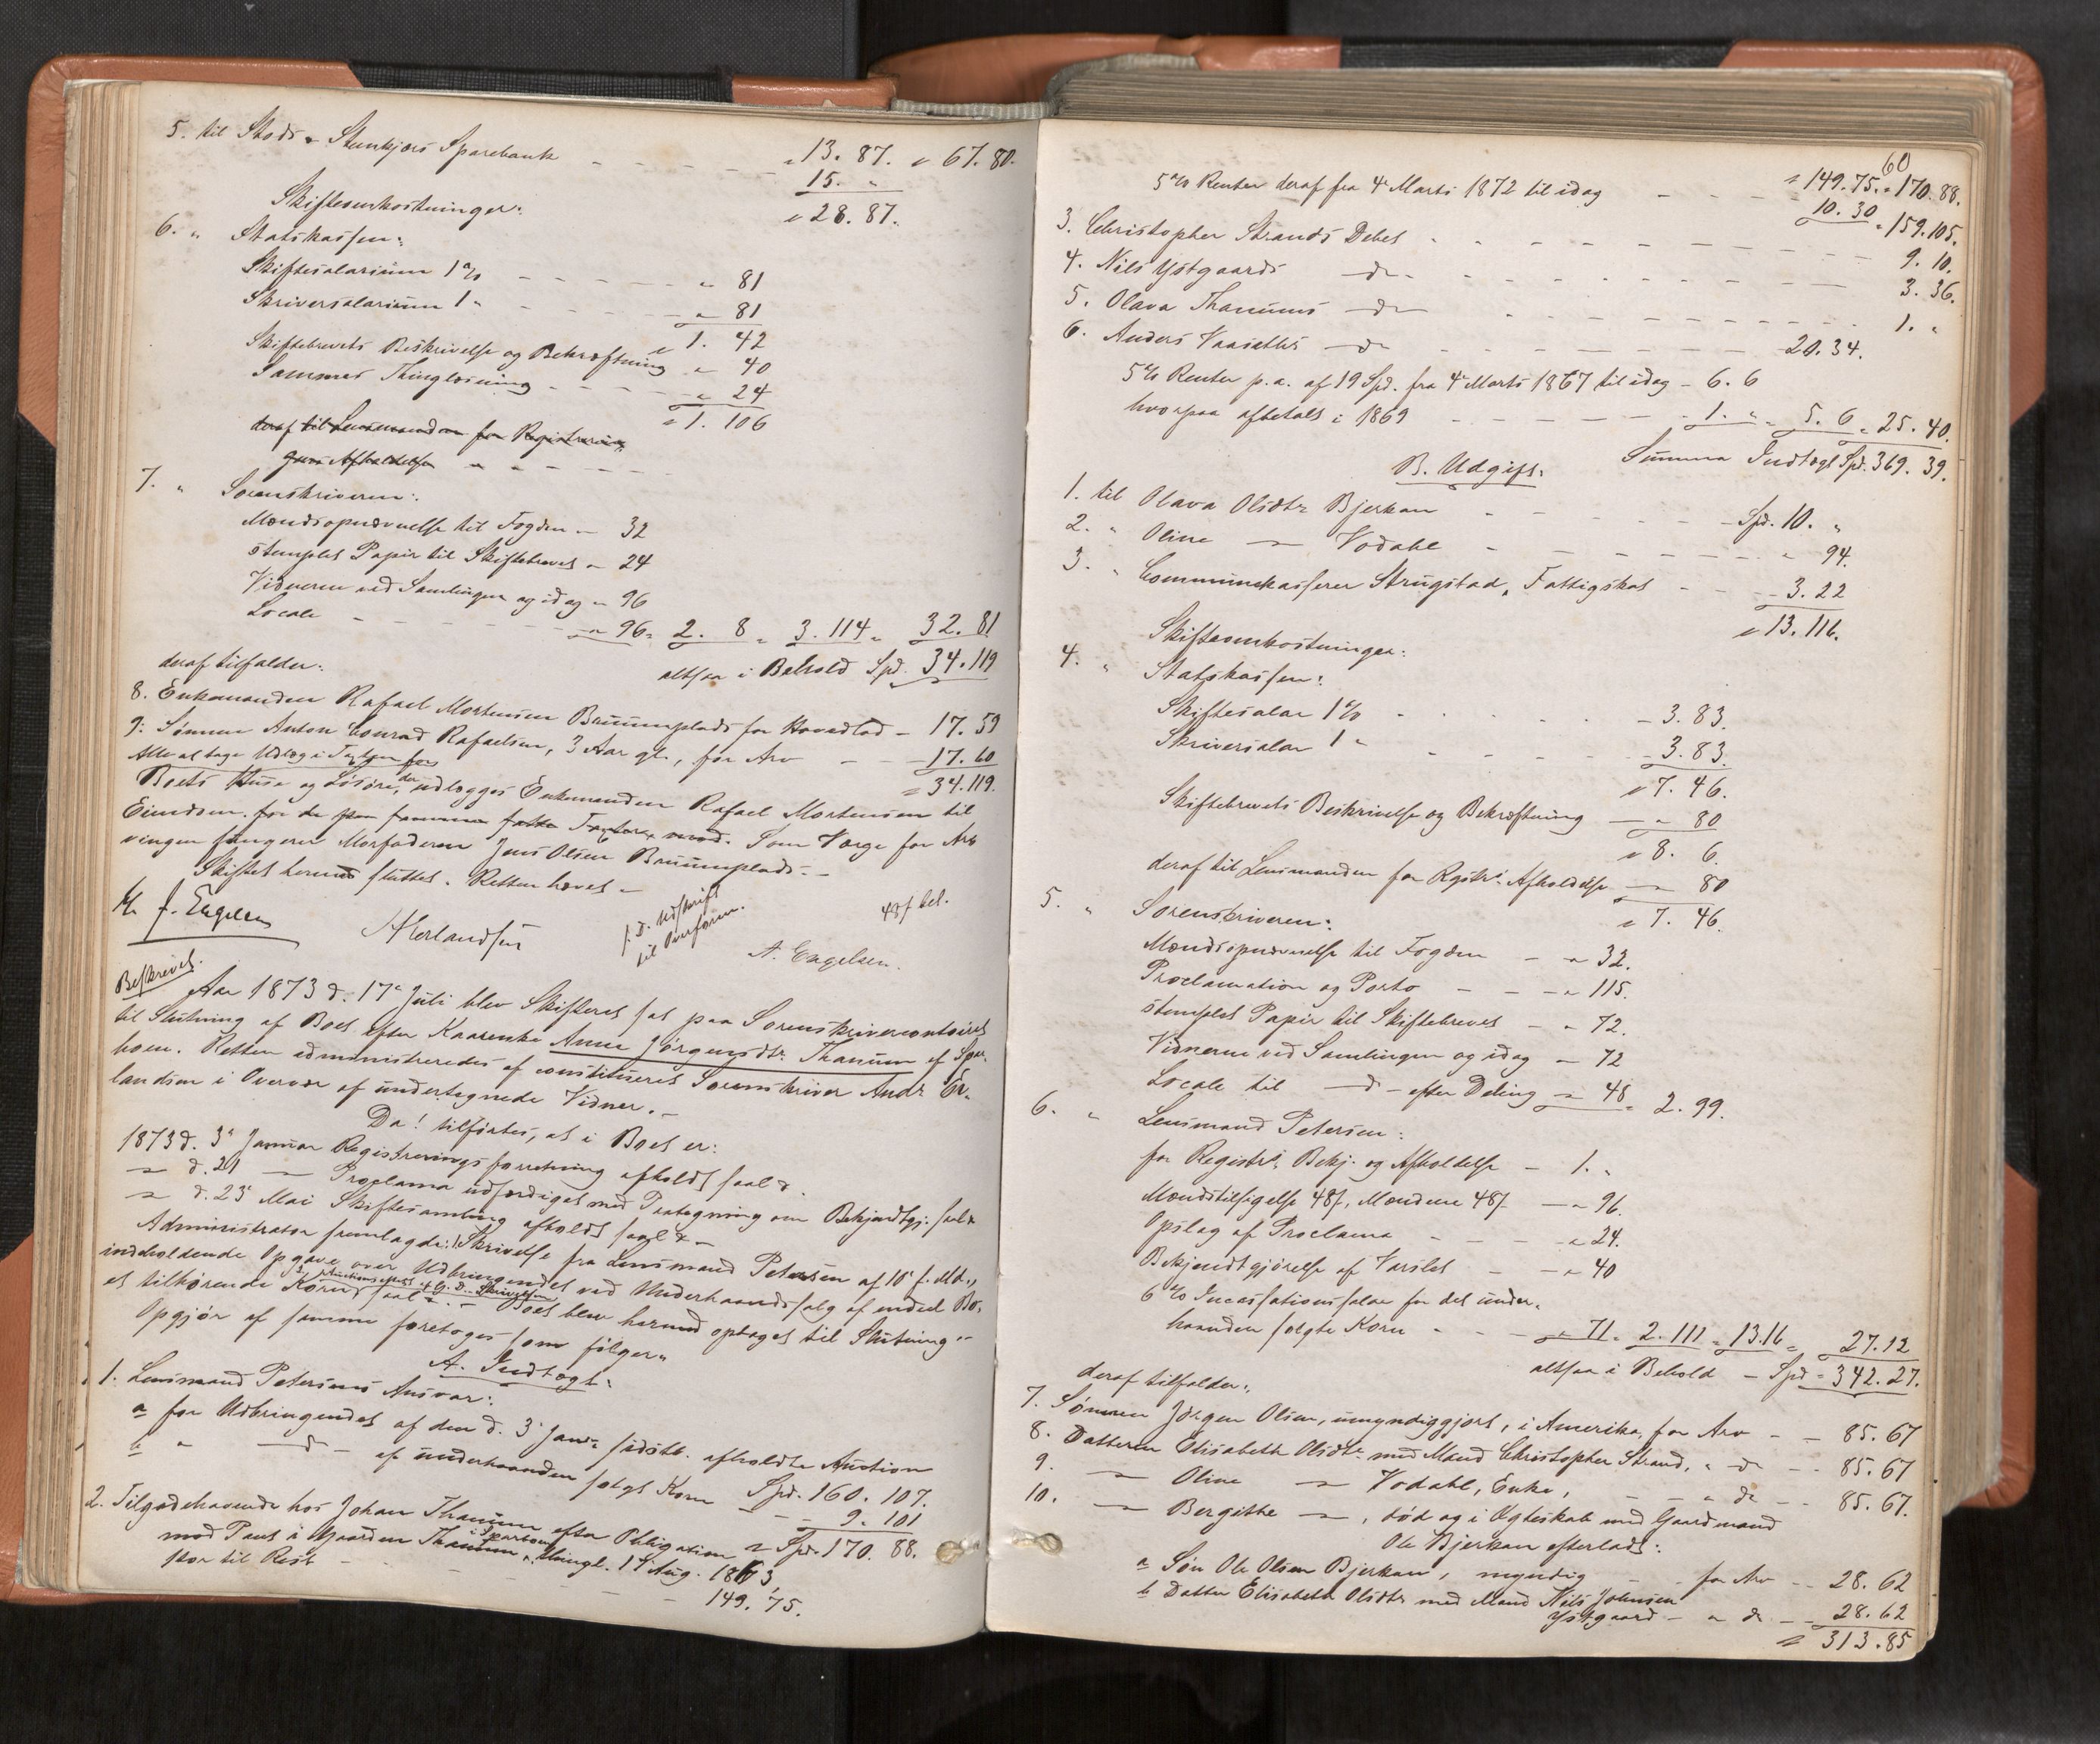 5. til Stods & Stenkjærs Sparebank - - - - - " 13. 87. " 67. 80.
15. "
Skifteomkostninger: " 28. 87.
6. " Statskassen:
Skiftesalarium 1 % - - - - - " 81
Skriversalarium 1 " - - - - - " 81
" 1. 42
Skiftebrevets Beskrivelse og Bekræftning " 40
Sammes Thinglæsning - - - " 24
" 1. 106
deraf til Lensmanden for Registrerings
Afholdelse " - - - -
7. " Sorenskriveren:
Mændsopnævnelse til Fogden - 32
stemplet Papir til Skiftebrevet " 24
Vidnerne ved Samlingen og idag " 96
Locale - - - - - " 96 " 2. 8 " 3. 114 " 32. 81
altsaa i Behold Spd. 34. 119
deraf tilfalder:
8. Enkemanden Rafael Mortensen Bruumplads for Hovedlod - 17. 59
9. Sønnen Anton Conrad Rafaelsen, 3 Aar gl., for Arv - - 17. 60
" 34. 119.
Boets Huse og Løsøre, udlægges Enkemanden Rafael Mortensen til
Eiendom. Som Værge for Arv
vingen fungerer Morfaderen Jens Olsen Bruumplads. -
Skiftet hermed sluttet. Retten hævet -
J. Engelsen
AErlandsen
f. d. Udskrift
til Overform.
48 s bet.
A. Engelsen.
Beskrevet.
Aar 1873 d. 17de Juli blev Skifteret sat paa Sorenskrivercontoiret
til Slutning af Boet efter Kaarenke Anne Jørgensdtr Thanum af Spar-
boen. Retten administreredes af constitueret Sorenskriver Andr. Er-
landsen i Overvær af undertegnede Vidner. -
Da! tilførtes, at i Boet er:
1873 d. 3die Januar Registreringsforretning afholdt saal.
" d. 21 " Proclama udfærdiget med Paategning om Bekjendtgj. saal.
" d. 23de Mai Skiftesamling afholdt saal. -
Administrator fremlagde: Skrivelse fra Lensmand Petersen af 10de f. Md.,
indeholdende Opgave over Udbringendet ved Underhaandssalg af endel Bo-
et tilhørende Korn saal. - Boet blev hermed optaget til Slutning -
Opgjør af samme foretoges som følger:
A. Indtægt:
1. Lensmand Petersens Ansvar:
a for Udbringendet af den d. 3die Janr. sidstl. afholdte Auction
Spd. 160. 107.
b " - d - af underhaanden solgt Korn - - 9. 101
" Spd. 170. 88.
2. Tilgodehavende hos Johan Thanum efter Obligation
med Pant i Gaarden Thanum i Sparboen, thingl. 1ste Aug. 1863
stor til Rest - - - - - - 149. 75.
60
" 149. 75. " 170. 88.
5 % Renter deraf fra 4de Marts 1872 til idag - - - 10. 30 " 159. 105.
3. Christopher Strands Debet - - - - - - - - 9. 10.
4. Nils Ystgaards - do - - - - - - - - - 3. 36.
5. Olava Thanums - do - - - - - - - - - 1. "
6. Anders Vaasethes - do - - - - - - 20. 34.
5 % Renter p. a. af 19 Spd. fra 4de Marts 1867 til idag - 6. 6
hvorpaa afbetalt i 1869 - - - - - 1. " " 5. 6 " 25. 40.
Summa Indtægt Spd. 369. 39.
B. Udgift:
1. til Olava Olsdtr Bjerkan - - - - - - Spd. 10. "
2. " Oline " Vodahl - - - - - - - " 94.
3. " Communekasserer Strugstad, Fattigskat - - - 3. 22
" 13. 116.
Skifteomkostninger:
4. " Statskassen:
Skiftesalar 1 % - - - - - 3. 83.
Skriversalar 1 " - - - - - 3. 83.
" 7. 46.
Skiftebrevets Beskrivelse og Bekræftning - " 80
" 8. 6.
deraf til Lensmanden for Rgstrs Afholdelse - " 80
" 7. 46.
5. " Sorenskriveren:
Mændsopnævnelse til Fogden - " 32.
Proclamation og Porto - - - " 115.
stemplet Papir til Skiftebrevet - " 72.
Vidnerne ved Samlingen og idag - 72
Locale til - d - efter Deling " 48 " 2. 99.
6. " Lensmand Petersen:
for Registr. Bekj. og Afholdelse - 1. "
Mændstilsigelse 48 s, Mændene 48 s - " 96.
Opslag af Proclama - - - " 24.
Bekjendtgjørelse af Varslet - - " 40
6 % Incassationssalar for det under-
haanden solgte Korn - - - " 71 " 2. 111 " 13. 16 " 27. 12
altsaa i Behold - Spd. 342. 27.
deraf tilfalder:
7. Sønnen Jørgen Olsen, umyndiggjort, i Amerika, for Arv - - 85. 67
8. Datteren Elisabeth Olsdtr med Mand Christopher Strand, " do - - 85. 67
9. " Oline " Vodahl, Enke, - - " do - - 85. 67.
10. " Bergithe " , død og i Egteskab med Gaardmand
Ole Bjerkan efterladt:
a Søn Ole Olsen Bjerkan, myndig - - for Arv - - 28. 62
b Datter Elisabeth Olsdtr med Mand Nils Johnsen
Ystgaard - " do - - 28. 62
" 313. 85